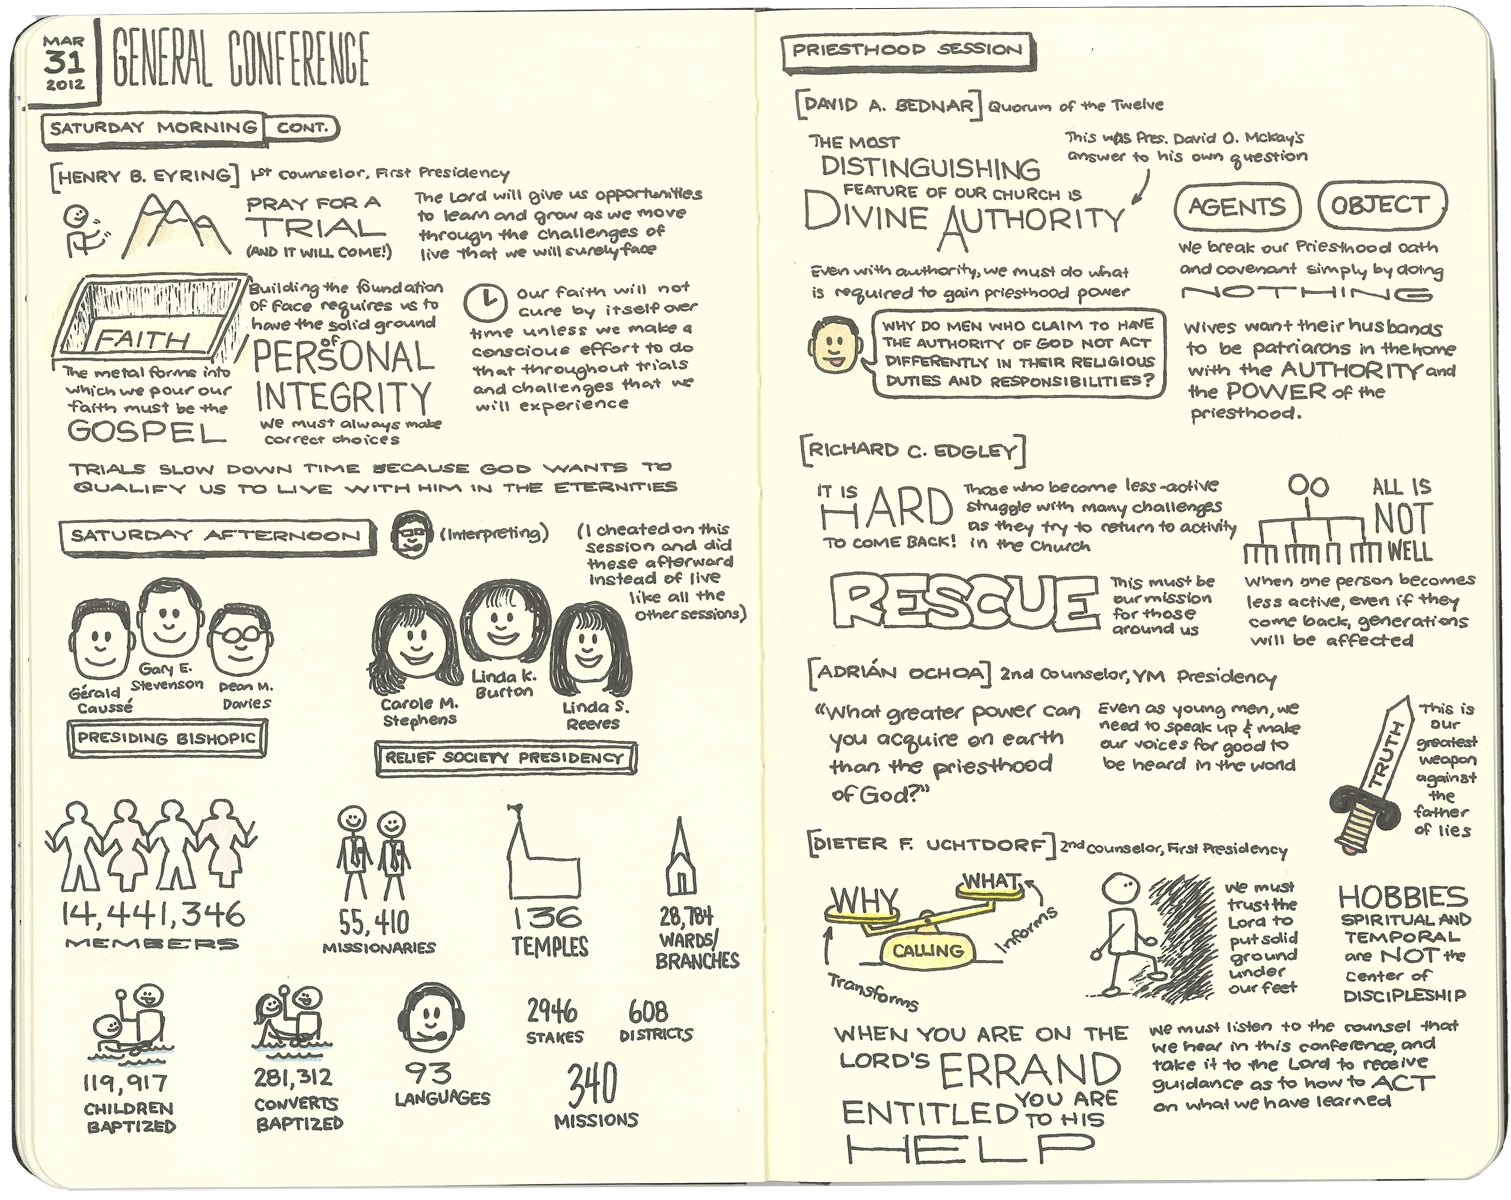 MAR
31
2012
GENERAL CONFERENCE
SATURDAY MORNING CONT.
[HENRY B. EYRING] 1st counselor, First Presidency
PRAY FOR A
TRIAL
(AND IT WILL COME!)
The Lord will give us opportunities
to learn and grow as we move
through the challenges of
live that we will surely face
FAITH
The metal forms into
which we pour our
faith must be the
GOSPEL
Building the foundation
of face requires us to
have the solid ground
of
PERSONAL
INTEGRITY
We must always make
correct choices
Our faith will not
cure by itself over
time unless we make a
conscious effort to do
that throughout trials
and challenges that we
will experience
TRIALS SLOW DOWN TIME BECAUSE GOD WANTS TO
QUALIFY US TO LIVE WITH HIM IN THE ETERNITIES
SATURDAY AFTERNOON
(Interpreting)
(I cheated on this
session and did
these afterward
instead of live
like all the
other sessions)
Gérald
Caussé
Gary E.
Stevenson
Dean M.
Davies
PRESIDING BISHOPIC
Carole M.
Stephens
Linda K.
Burton
Linda S.
Reeves
RELIEF SOCIETY PRESIDENCY
14,441,346
MEMBERS
55,410
MISSIONARIES
136
TEMPLES
28,784
WARDS/
BRANCHES
119,917
CHILDREN
BAPTIZED
281,312
CONVERTS
BAPTIZED
93
LANGUAGES
2946
STAKES
608
DISTRICTS
340
MISSIONS
PRIESTHOOD SESSION
[DAVID A. BEDNAR] Quorum of the Twelve
THE MOST
DISTINGUISHING
FEATURE OF OUR CHURCH IS
DIVINE AUTHORITY
This was Pres. David O. McKay's
answer to his own question
Even with authority, we must do what
is required to gain priesthood power
WHY DO MEN WHO CLAIM TO HAVE
THE AUTHORITY OF GOD NOT ACT
DIFFERENTLY IN THEIR RELIGIOUS
DUTIES AND RESPONSIBILITIES?
AGENTS
OBJECT
We break our Priesthood oath
and covenant simply by doing
NOTHING
Wives want their husbands
to be patriarchs in the home
with the AUTHORITY and
the POWER of the
priesthood.
[RICHARD C. EDGLEY]
IT IS
HARD
TO COME BACK!
Those who become less-active
struggle with many challenges
as they try to return to activity
in the Church
RESCUE
This must be
our mission
for those
around us
ALL IS
NOT
WELL
When one person becomes
less active, even if they
come back, generations
will be affected
[ADRIÁN OCHOA] 2nd Counselor, YM Presidency
"What greater power can
you acquire on earth
than the priesthood
of God?"
Even as young men, we
need to speak up & make
our voices for good to
be heard in the world
TRUTH
This is
our
greatest
weapon
against
the
father
of lies
[DIETER F. UCHTDORF] 2nd Counselor, First Presidency
WHY
WHAT
CALLING
Transforms
Informs
We must
trust the
Lord to
put solid
ground
under
our feet
HOBBIES
SPIRITUAL AND
TEMPORAL
are NOT the
center of
DISCIPLESHIP
WHEN YOU ARE ON THE
LORD'S ERRAND
YOU ARE
ENTITLED TO HIS
HELP
We must listen to the counsel that
we hear in this conference, and
take it to the Lord to receive
guidance as to how to ACT
on what we have learned